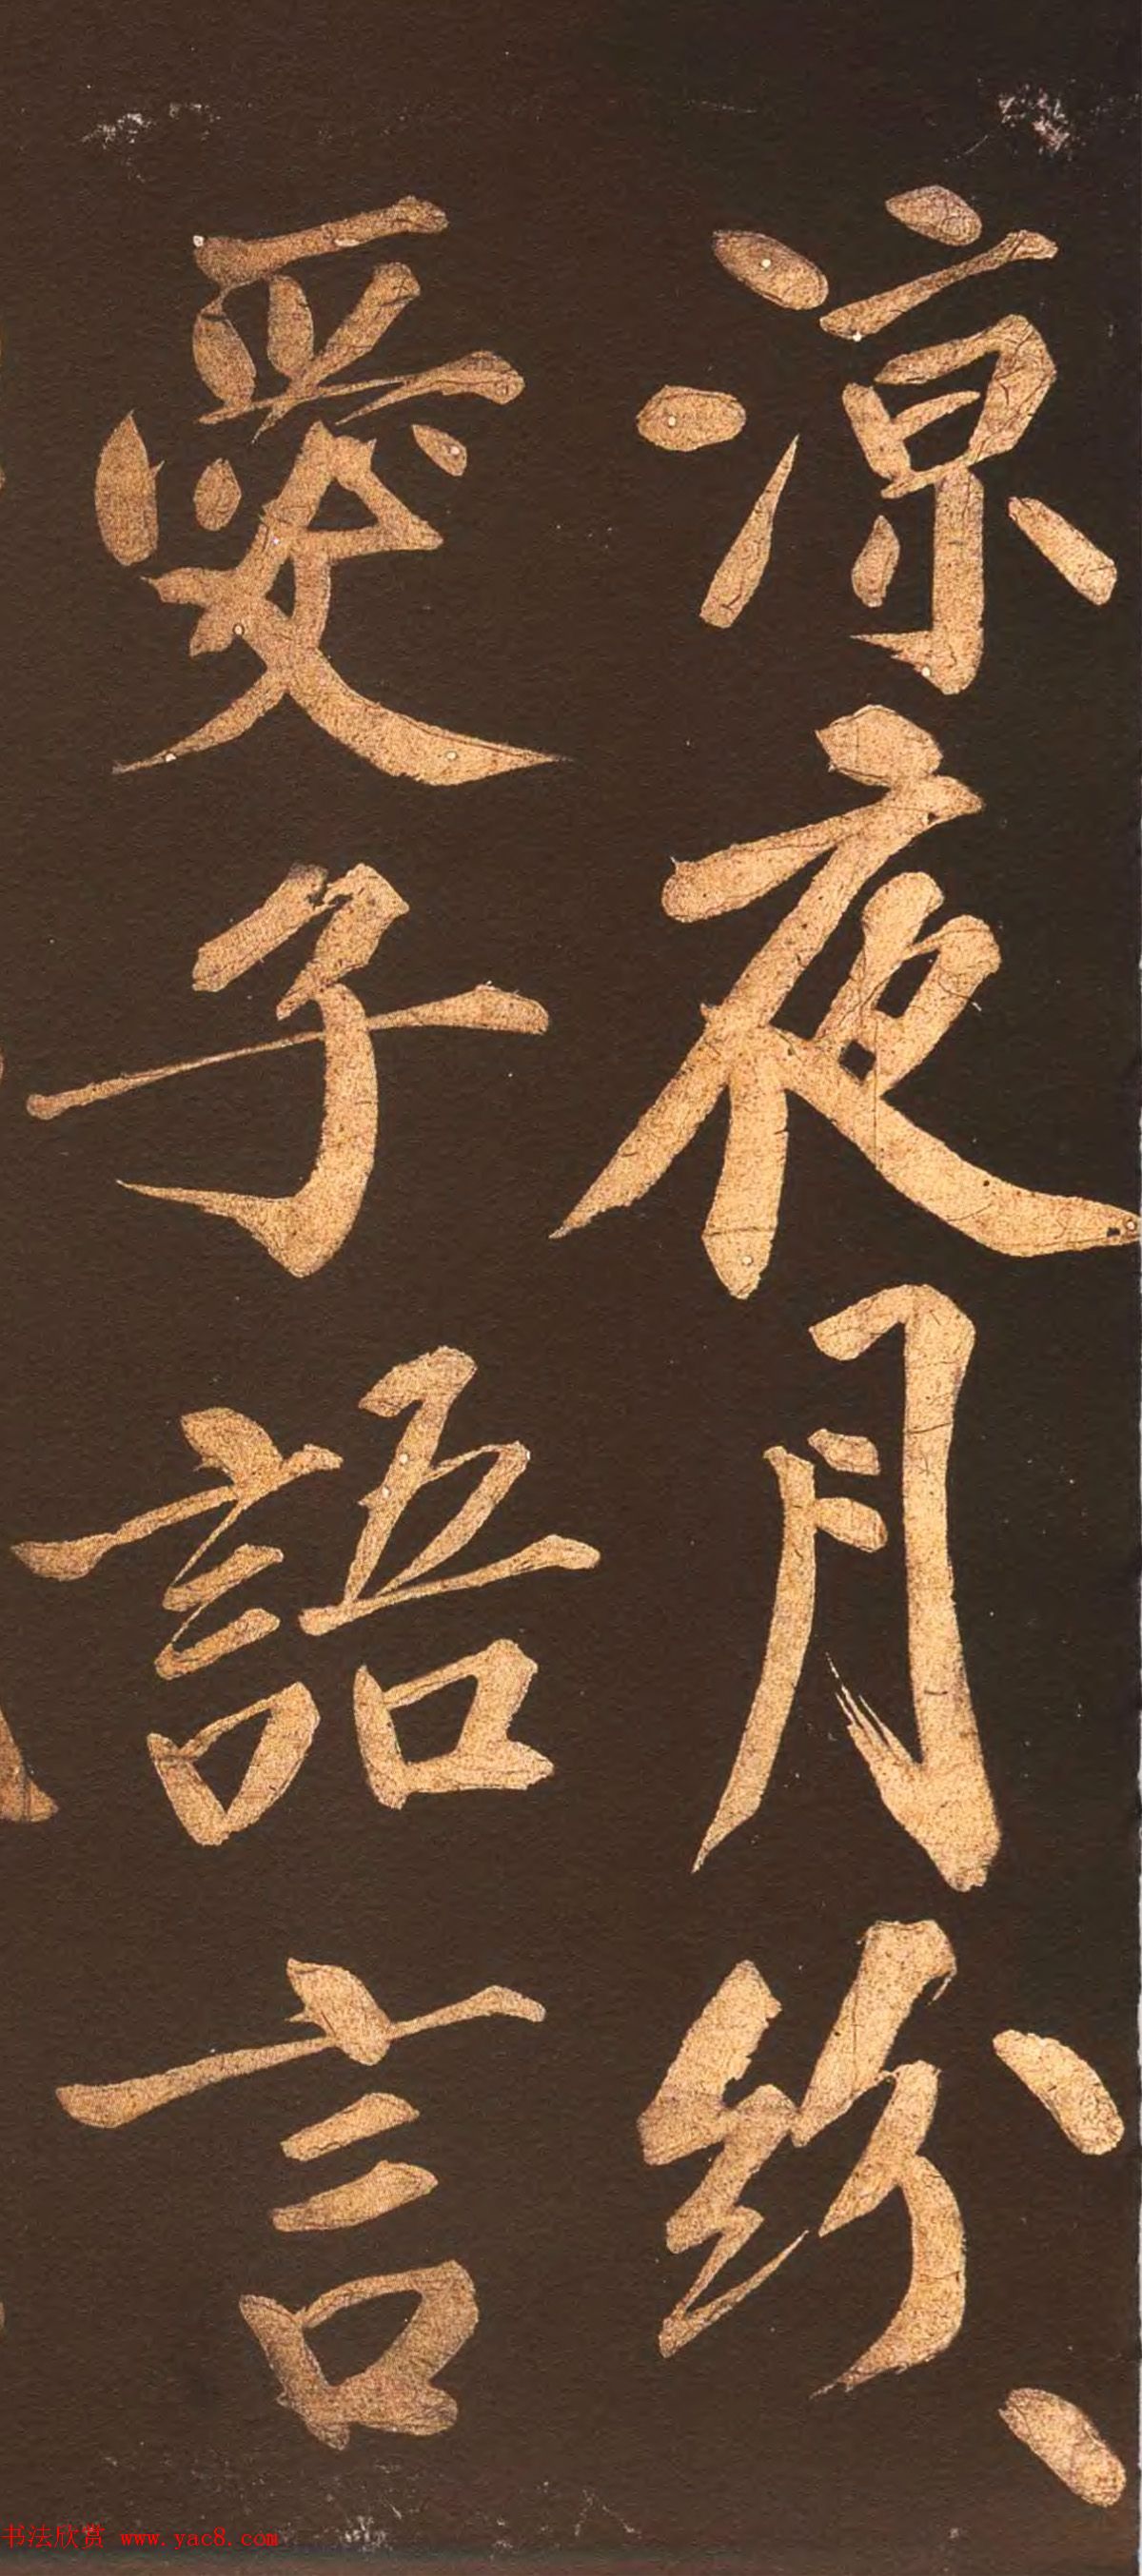 涼夜月紛、
愛子語言
书法欣赏 www.yac8.com